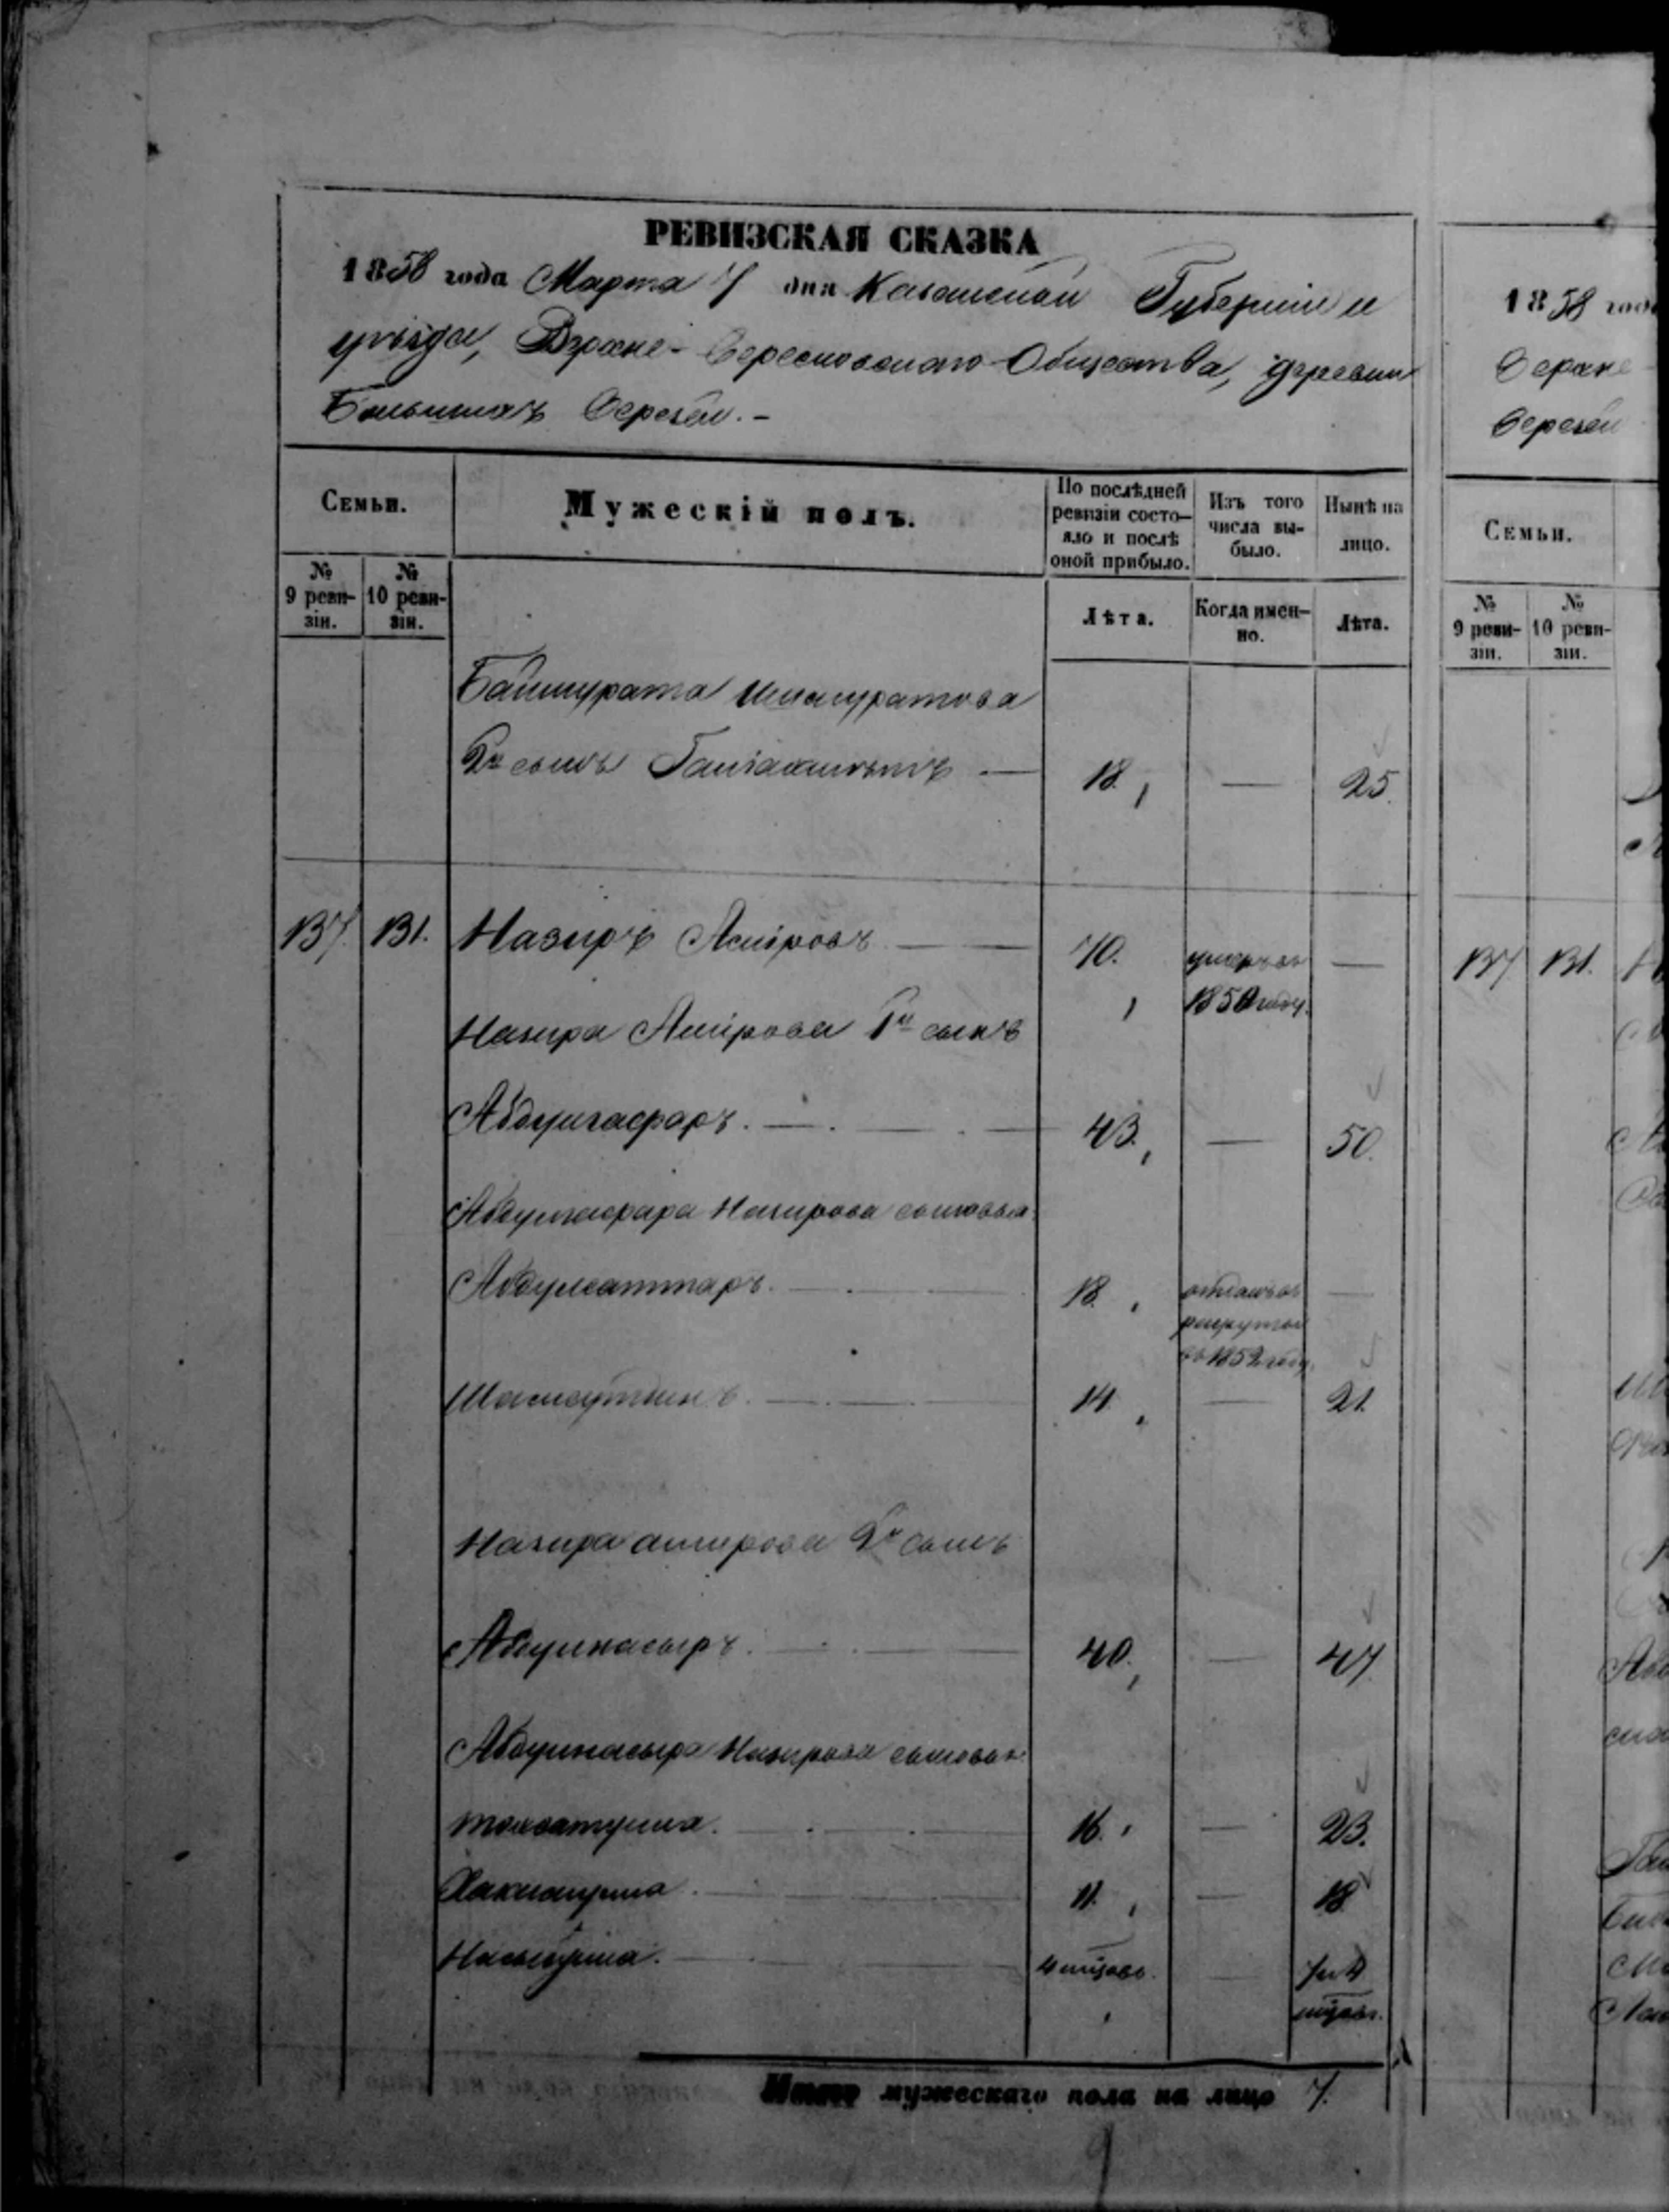 РЕВИЗСКАЯ СКАЗКА
1858 года Марта 7 дня Казанской Губерніи и
уѣзда, Верхне-Березовскаго Общества, деревни
Большихъ Березъи.-
Семьи.
№ 9 реви-
зіи.
№ 10 реви-
зіи.
Мужескій полъ.
По послѣдней
ревизіи состо-
яло и послѣ
оной прибыло.
Лѣта.
Изъ того
числа вы-
было.
Когда имен-
но.
Нынѣ на
лицо.
Лѣта.
Баймурата Ишмуратова
2й сынъ — 18. — 25.
137. 131. Назиръ Амировъ — 70. умеръ въ —
1850 году.
Назира Амирова 1й сынъ
Абдулгафаръ. — 43. — 50.
Абдулгафара Назирова сыновья
Абдулсаттаръ. — 18. отданъ въ —
рекруты
въ 1852 году.
Шамсутдинъ. — 14. — 21.
Назира амирова 2й сынъ
Абдулнасыръ. — 40. — 47.
Абдулнасыра Назирова сыновья
16. — 23.
11. — 18
4 мѣсяц. — 7 и 4
мѣсяц.
Итого мужескаго пола на лицо 7.
9
1858 года
Верхне
Березъи
Семьи.
№ 9 реви-
зіи.
№ 10 реви-
зіи.
137 131.